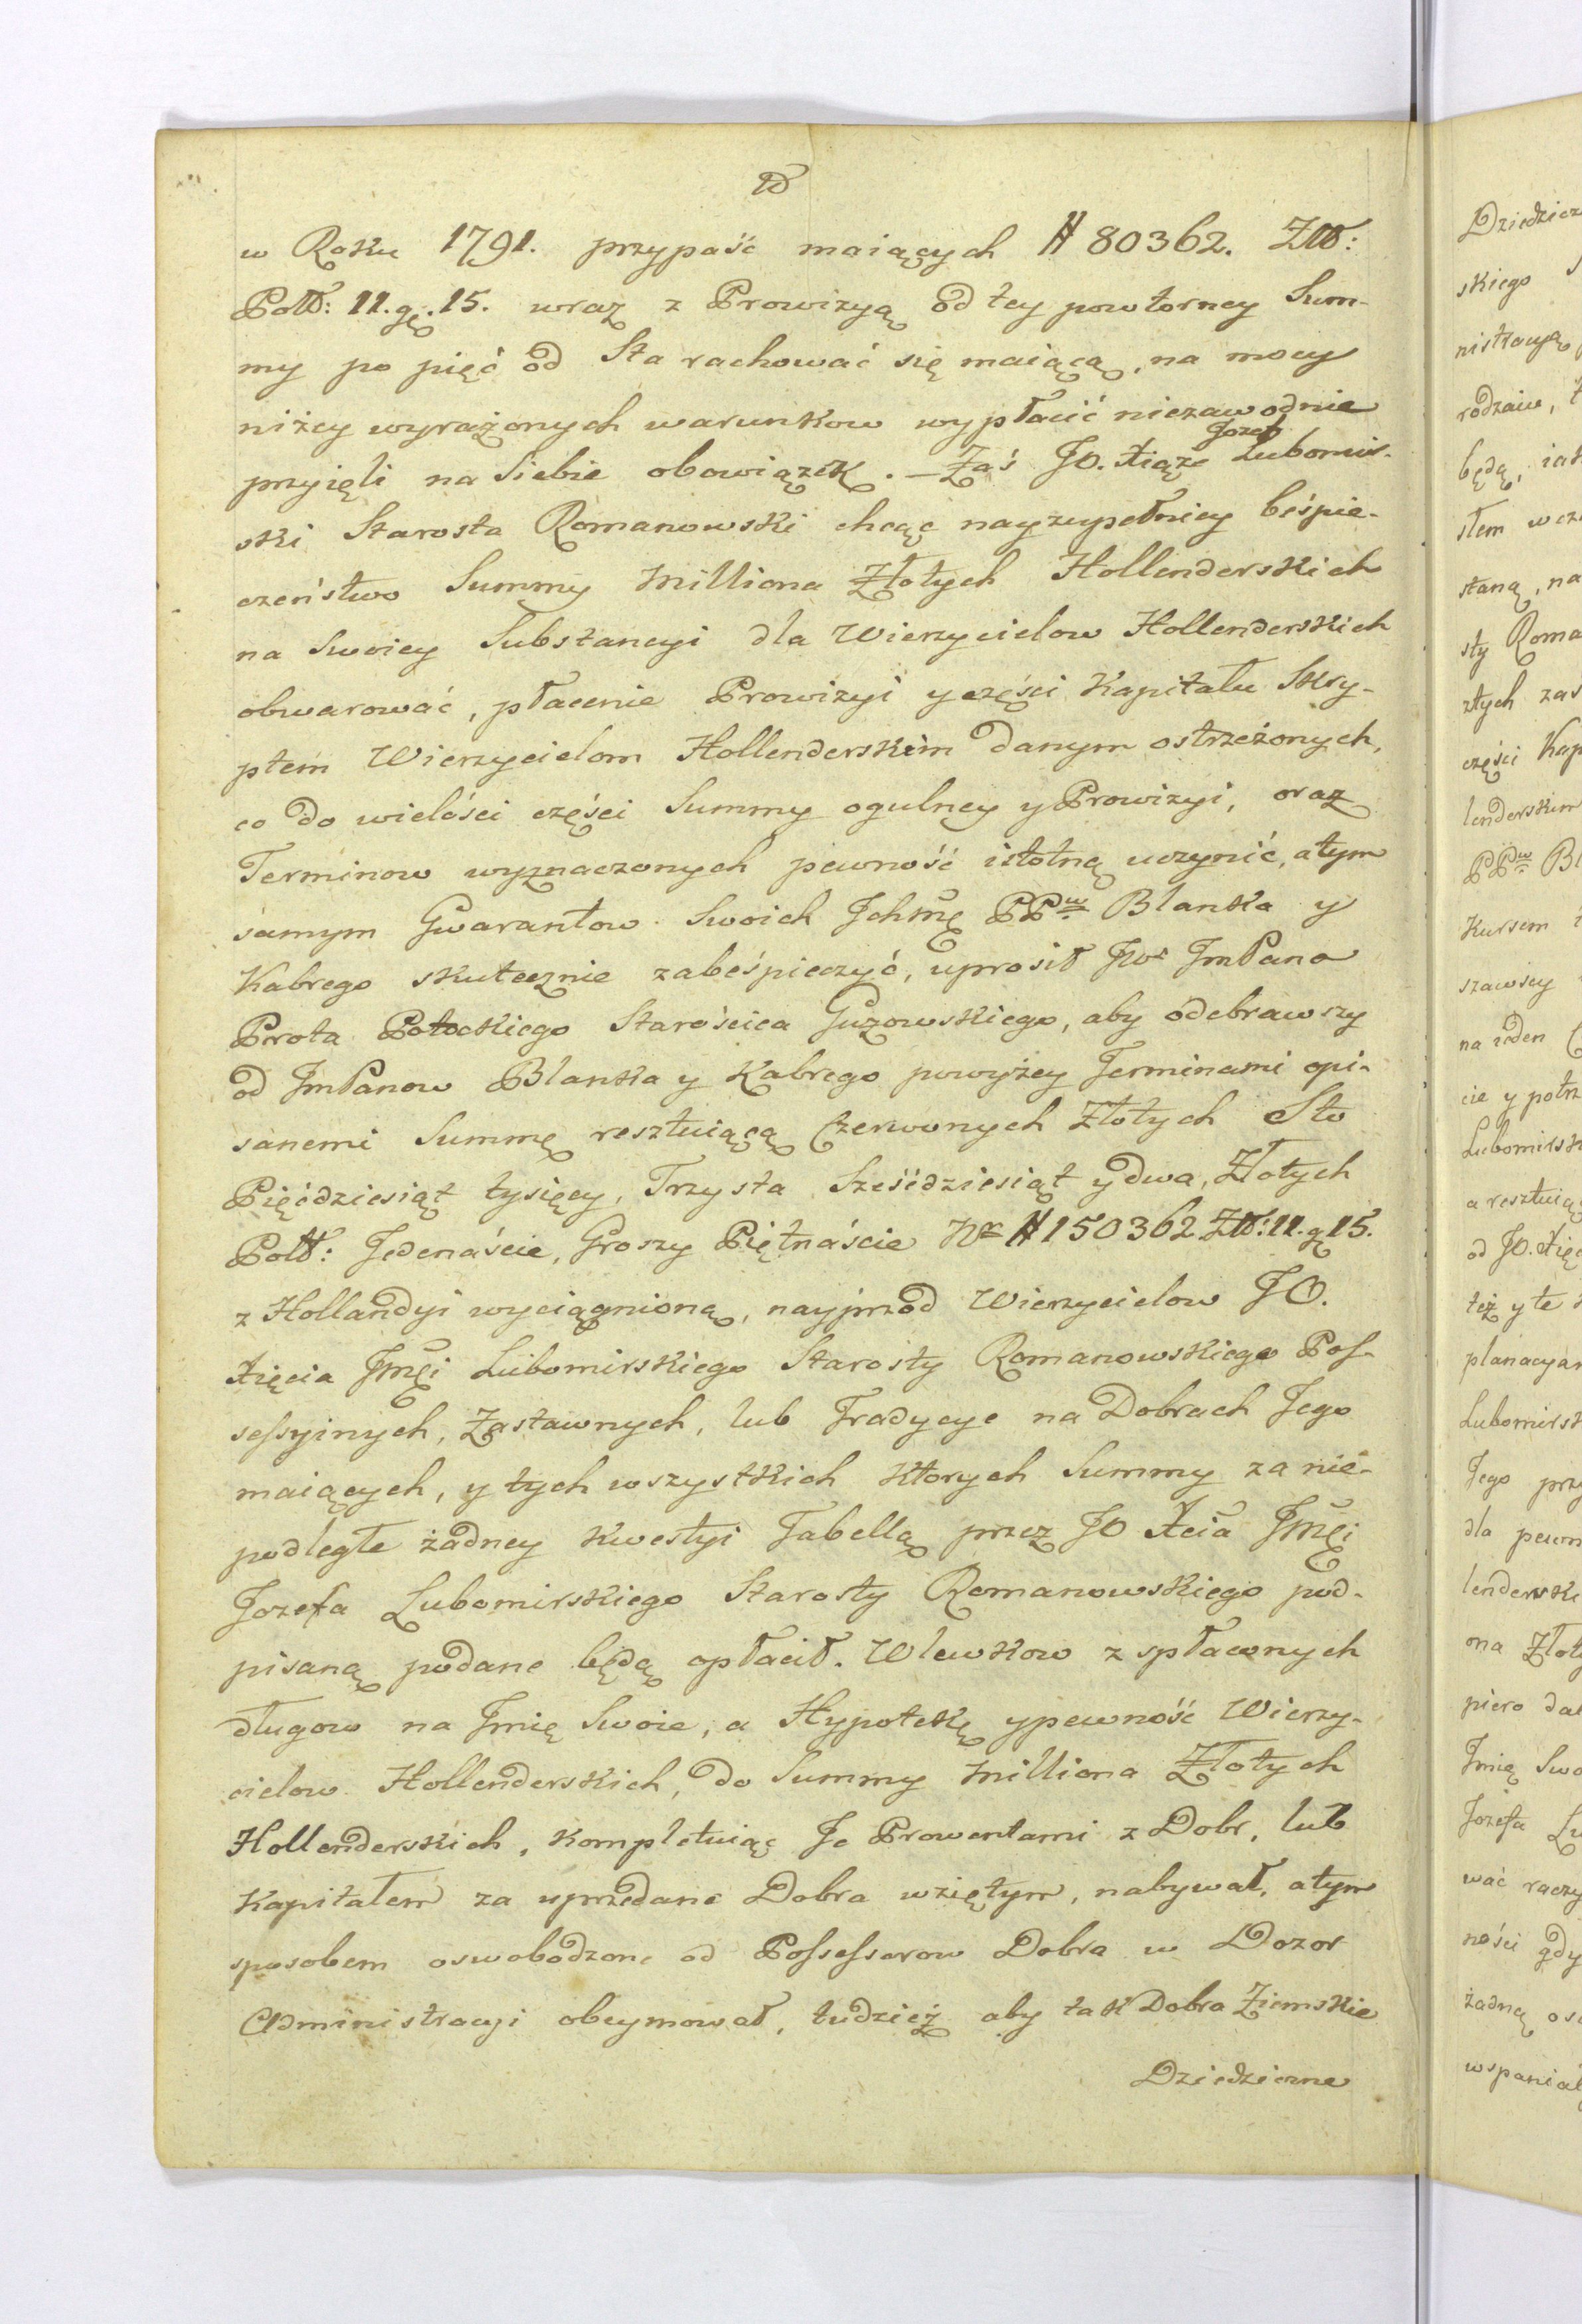 w Roku 1791. przypaść maiących # 80362. Złł:
Poll: 11. gr. 15. wraz z Prowizyą od tey powtorney Sum-
my po pięć od Sta rachować się maiącą, na mocy
niżey wyrażonych warunkow wypłacić niezawodnie
przyięli na Siebie obowiązek. — Zaś JO. Xiąże Jozef Lubomir-
ski Starosta Romanowski chcąc nayzupełniey beśpie-
czeństwo Summy Milliona Złotych Hollenderskich
na Swoiey Substancyi dla Wierzycielow Hollenderskich
obwarować, płacenie Prowizyi y części Kapitału Skry-
ptem Wierzycielom Hollenderskim danym ostrzeżonych,
co do wielości części Summy ogulney y Prowizyi, oraz
Terminow wyznaczonych pewność istotną uczynić, a tym
samym Gwarantow Swoich Ichmę PPw Blanka y
Kabrego skutecznie zabeśpieczyć, uprosił JWo ImPana
Prota Potockiego Starościca Guzowskiego, aby odebrawszy
od ImPanow Blanka y Kabrego powyżey Terminami opi-
sanemi Summę resztuiącą Czerwonych Złotych Sto
Pięćdziesiąt tysięcy, Trzysta Sześćdziesiąt y dwa, Złotych
Poll: Jedenaście, Groszy Piętnaście Nro # 150362 Złł: 11. gr 15.
z Hollandyi wyciągnioną, nayprzod Wierzycielow JO.
Xięcia Jmci Lubomirskiego Starosty Romanowskiego Pos-
sessyinych, Zastawnych, lub Tradycye na Dobrach Jego
maiących, y tych wszystkich ktorych Summy za nie-
podległe żadney kwestyi Tabellą przez JO Xcia Jmci
Jozefa Lubomirskiego Starosty Romanowskiego pod-
pisaną podane będą opłacił. Wlewkow z spłaconych
długow na Imię Swoie, a Hypotekę y pewność Wierzy-
cielow Hollenderskich, do Summy Milliona Złotych
Hollenderskich, kompletuiąc Je Prowentami z Dobr, lub
Kapitałem za uprzedane Dobra wziętym, nabywał, a tym
sposobem oswobodzone od Possessorow Dobra w Dozor
Administracyi obeymował, tudzież aby tak Dobra Ziemskie
Dziedziczne
Dziedzicz
skiego
nistracyą
rodzaiu,
będą, iak
stem
staną, na
sty Roma
złtych zas
części Kap
lenderskim
PPw Bl
Kursem
szawsey
na ieden
cie y potrz
Lubomirsk
a resztuią
od JO. Xię
też y te
planacyam
Lubomirsk
Jego przy
dla pewn
lenderski
ona Złoty
piero dal
Imię Swo
Jozefa Lu
wać raczy
ności gdy
żadną oso
wspaniał